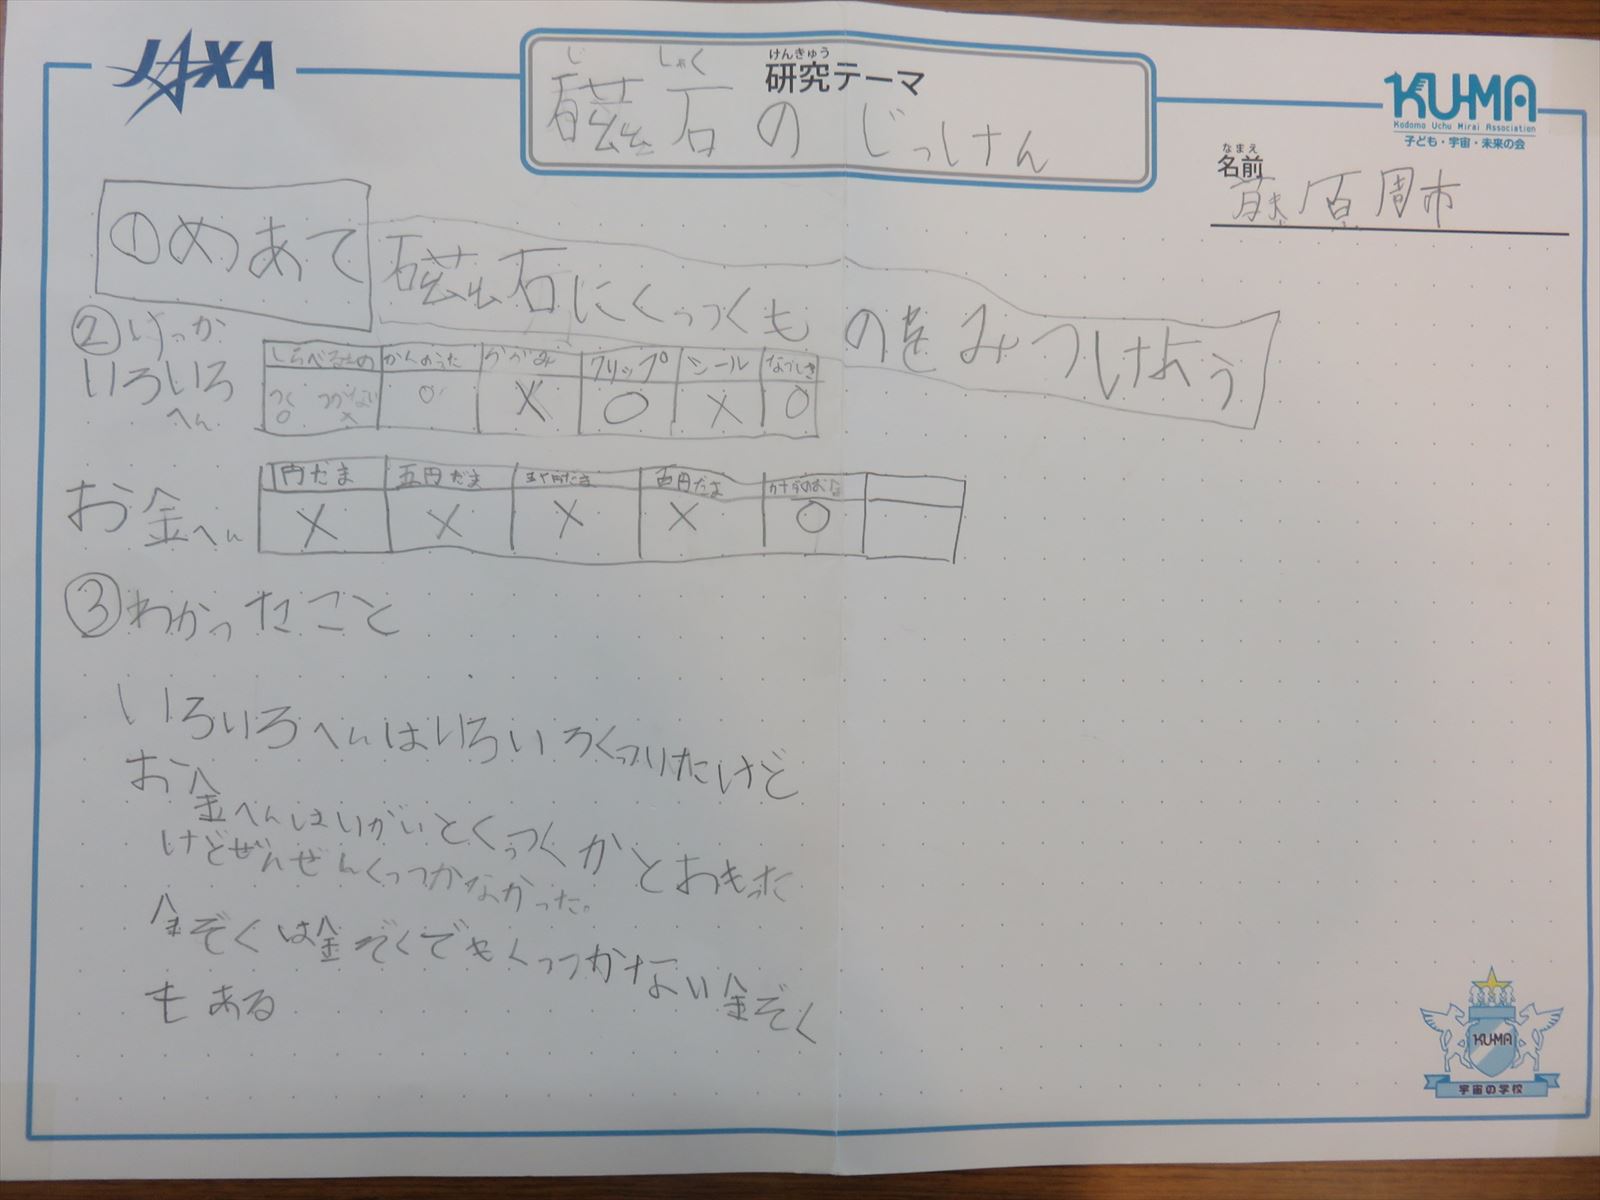 JAXA
けんきゅう
研究テーマ
じ しゃく
磁石のじっけん
KU-MA
Kodomo Uchu Mirai Association
子ども・宇宙・未来の会
なまえ
名前
藤原周市
①めあて
磁石にくっつくものをみつけよう
②けっか
いろいろへん
しらべるもの かんのふた かがみ クリップ シール
つく ○ つかない × ○ × ○ × ○
お金へん
1円だま 五円だま 五十円だま 百円だま
× × × × ○
③わかったこと
いろいろへんはいろいろくっついたけど
お金へんはいがいとくっつくかとおもった
けどぜんぜんくっつかなかった。
金ぞくは金ぞくでもくっつかない金ぞく
もある
KU-MA
宇宙の学校